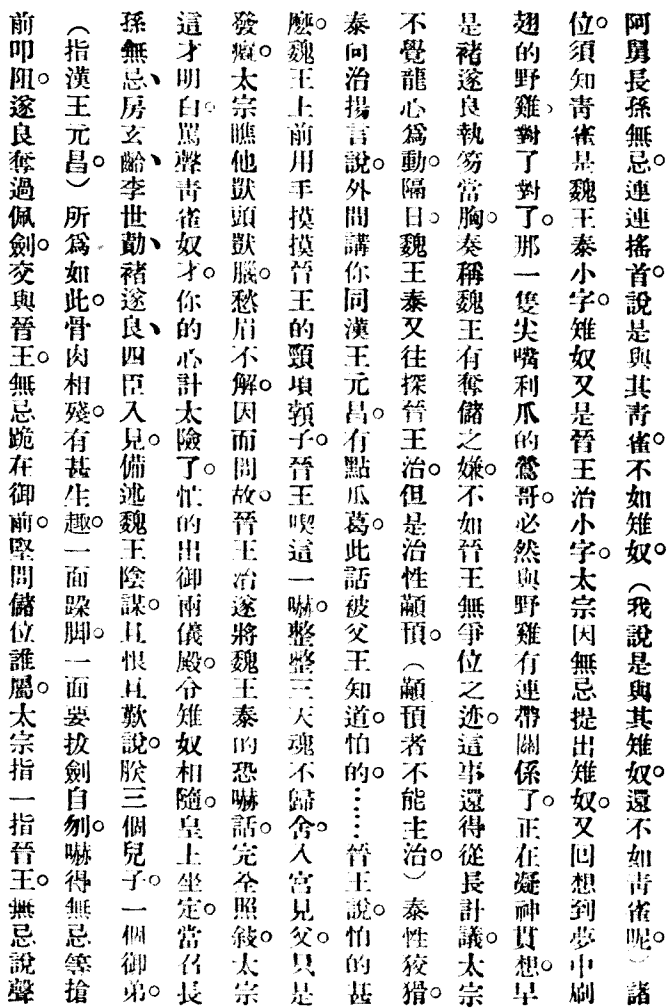 阿舅長孫無忌。連連搖首說是與其靑雀。不如雉奴。（我說是與其雉奴。還不如靑雀呢。）諸
位。須知靑雀是魏王泰小字。雉奴又是晉王治小字。太宗因無忌提出雉奴。又回想到夢中刷
翅的野雞、對了對了。那一隻尖嘴利爪的鶯哥。必然與野雞有連帶關係了。正在凝神貫想。早
是褚遂良執笏當胸。奏稱魏王有奪儲之嫌。不如晉王無爭位之迹。這事還得從長計議。太宗
不覺龍心爲動。隔日。魏王泰又往探晉王治。但是治性顢頇。（顢頇者不能主治）泰性狡猾。
泰向治揚言說。外間講你同漢王元昌。有點瓜葛。此話被父王知道。怕的。……晉王說。怕的甚
麽。魏王上前用手摸摸晉王的頸項頸子。晉王喫這一嚇。整整三天魂不歸舍。入宮見父。只是
發癡。太宗瞧他獃頭獃腦。愁眉不解。因而問故。晉王治遂將魏王泰的恐嚇話。完全照敍。太宗
這才明白。罵聲靑雀奴才。你的心計太險了。忙的出御兩儀殿。令雉奴相隨。皇上坐定。當召長
孫無忌、房玄齡、李世勣、褚遂良、四臣入見。備述魏王陰謀。且恨且歎說。朕三個兒子。一個御弟。
（指漢王元昌。）所爲如此。骨肉相殘。有甚生趣。一面跺脚。一面要拔劍自刎。嚇得無忌等搶
前叩阻。遂良奪過佩劍。交與晉王。無忌跪在御前。堅問儲位誰屬。太宗指一指晉王。無忌說聲